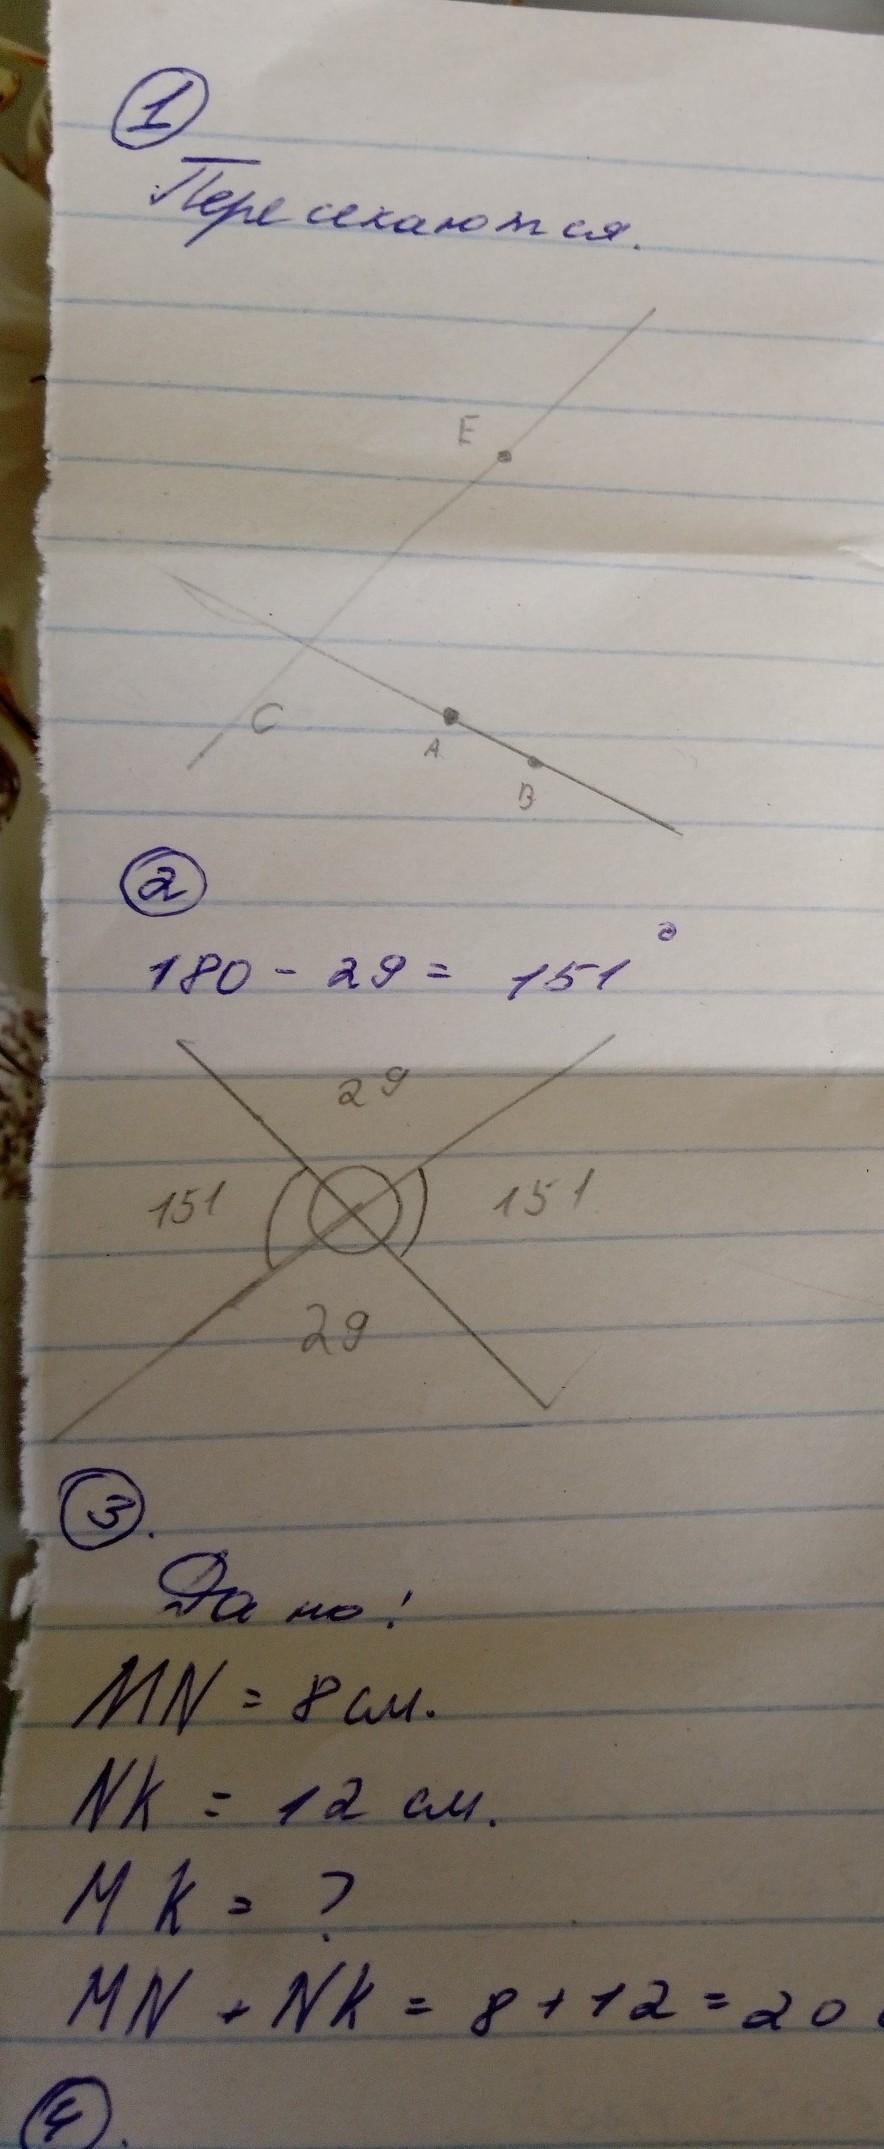 1
Пересекаются.
E
C
A
B
2
180 - 29 = 151°
29
151 151
29
3.
Дано:
MN = 8 см.
NK = 12 см.
MK = ?
MN + NK = 8 + 12 = 20
4.